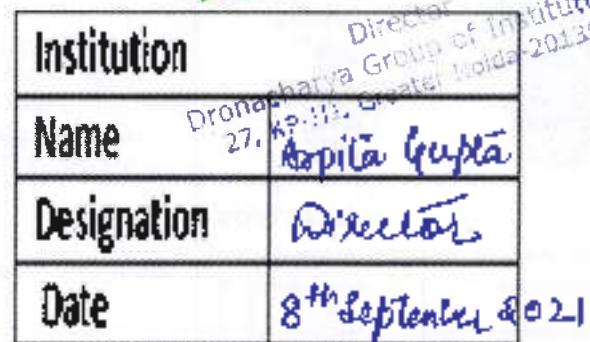 Director
Dronacharya Group of Institut
27, KP-III, Greater Noida-20130
Institution
Name Arpita Gupta
Designation Director
Date 8th September 2021